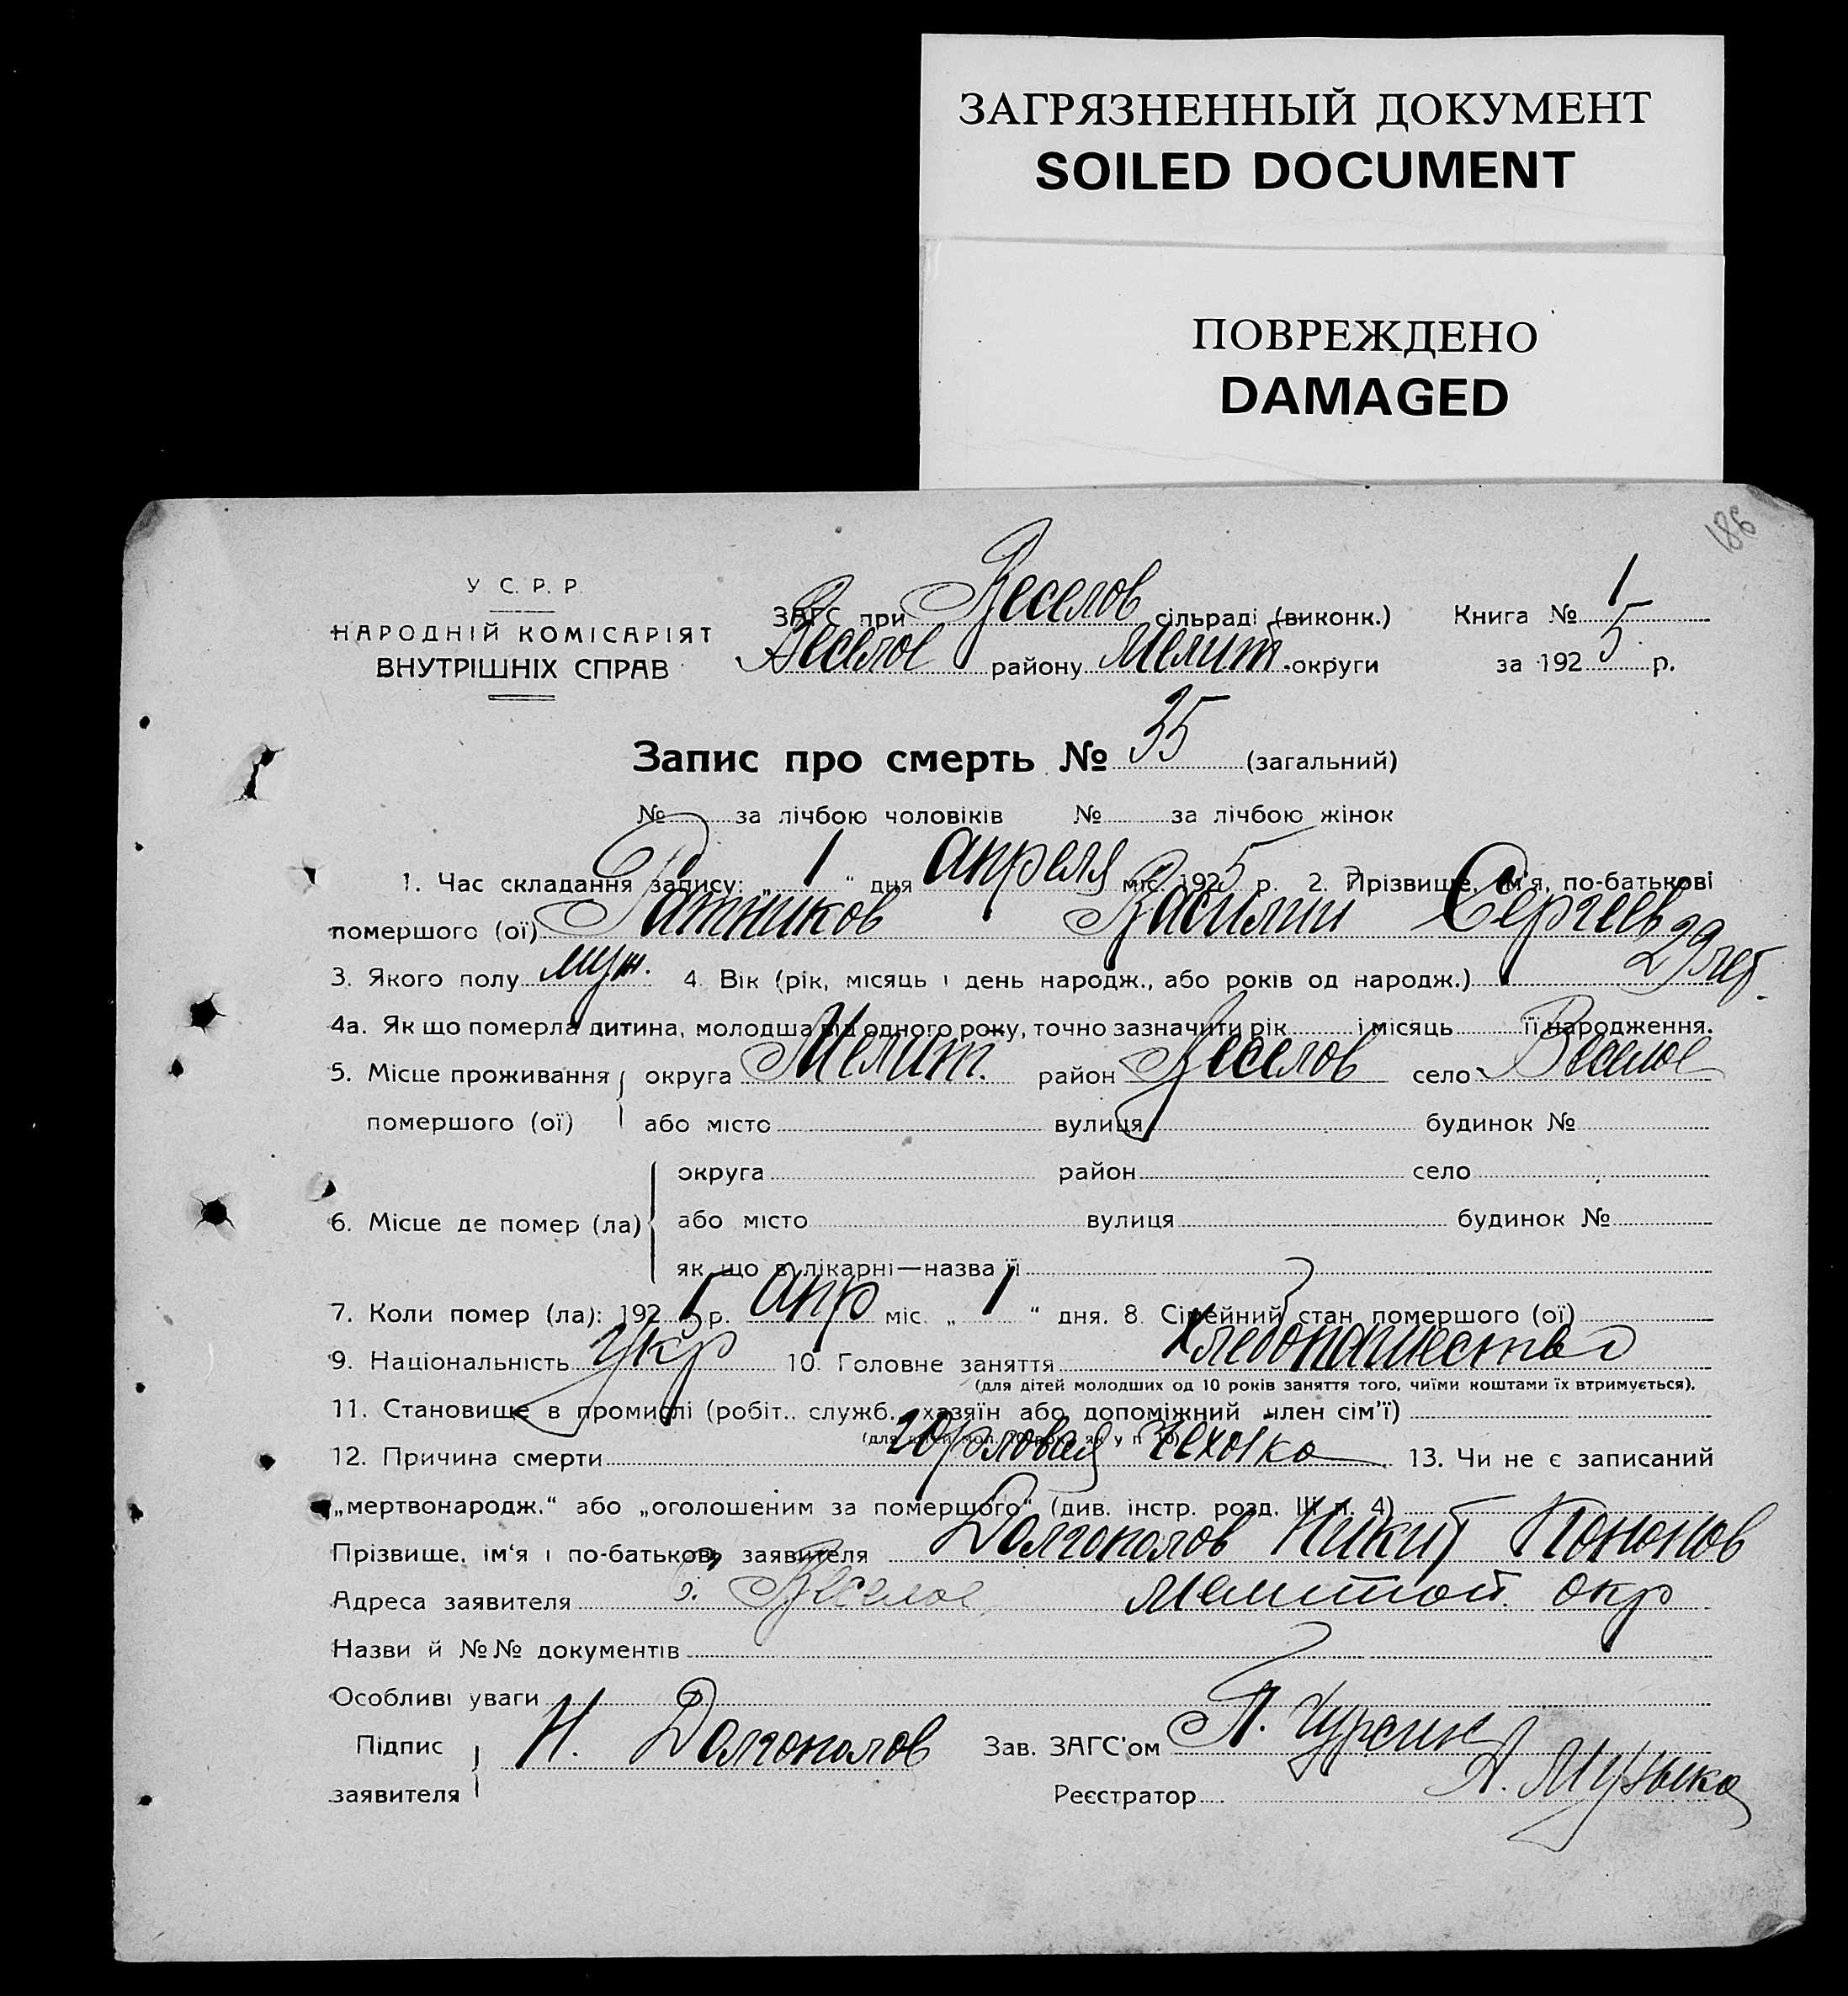 ЗАГРЯЗНЕННЫЙ ДОКУМЕНТ
SOILED DOCUMENT
ПОВРЕЖДЕНО
DAMAGED
186
У С. Р. Р.
НАРОДНІЙ КОМІСАРІЯТ
ВНУТРІШНІХ СПРАВ
ЗАГС при Веселов сільраді (виконк.) Книга № 1
Веселое району Мелит. округи за 1925 р.
Запис про смерть № 35 (загальний)
№ за лічбою чоловіків № за лічбою жінок
1. Час складання запису: „ 1 “ дня апреля міс. 1925 р. 2. Прізвище, ім'я, по-батькові
помершого (ої) Ратников Василий Сергеев
3. Якого полу муж. 4. Вік (рік, місяць і день народж., або років од народж.) 29 лет.
4а. Як що померла дитина, молодша від одного року, точно зазначити рік і місяць її народження.
5. Місце проживання округа Мелит. район Веселов село Веселое
помершого (ої) або місто вулиця будинок №
округа район село
6. Місце де помер (ла) або місто вулиця будинок №
як що в лікарні—назва її
7. Коли помер (ла): 1925 р. апр міс. „ 1 “ дня. 8. Сімейний стан помершого (ої)
9. Національність Укр 10. Головне заняття Хлебопашество
(для дітей молодших од 10 років заняття того, чиїми коштами їх втримується).
11. Становище в промислі (робіт.. служб., хазяїн або допоміжний член сім'ї)
12. Причина смерти горловая чехотка 13. Чи не є записаний
„мертвонародж.“ або „оголошеним за помершого“ (див. інстр. розд. III п. 4)
Прізвище, ім'я і по-батькові заявителя Долгополов Никит Кононов
Адреса заявителя с. Веселое, Мелитоп. окр
Назви й №№ документів
Особливі уваги
Підпис Н. Долгополов Зав. ЗАГС'ом
заявителя Реєстратор А. Музыка